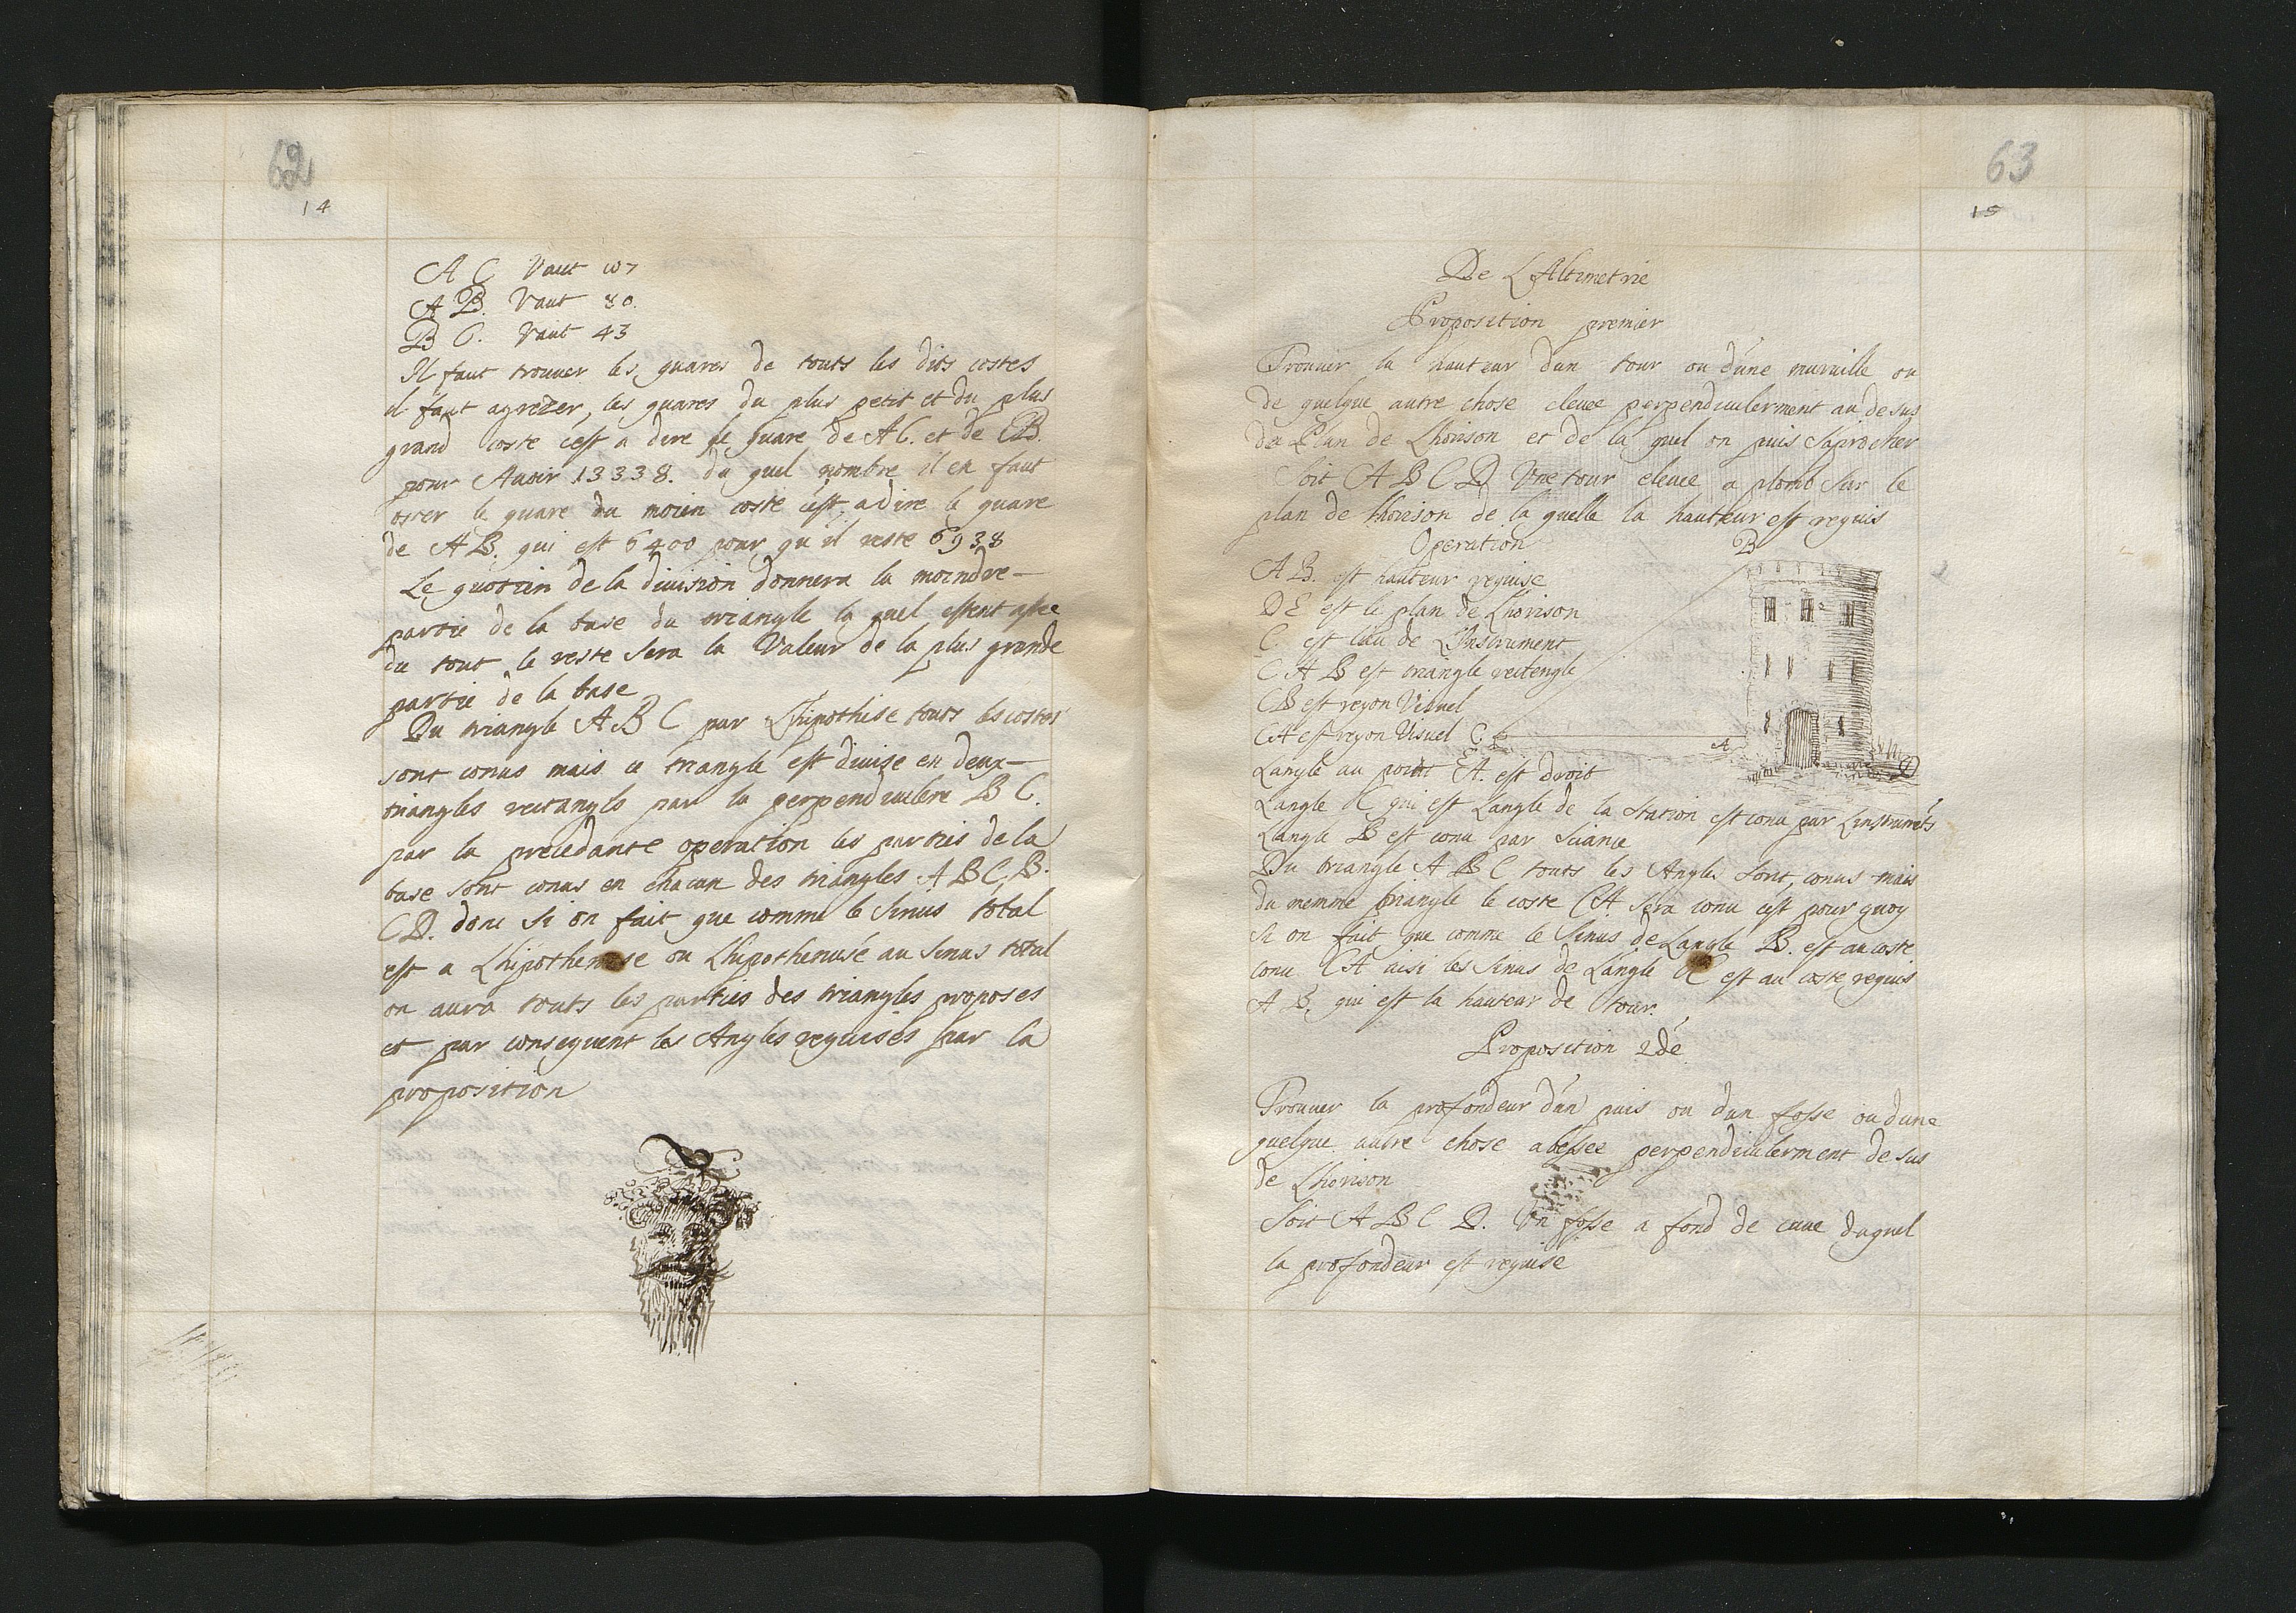 62
14
A C Vaut 107
A B. Vaut 80.
B C. Vaut 43
Il faut trouver les quares de touts les dits costes
il faut agrezer, les quares du plus petit et du plus
grand coste c'est a dire le quare de AC. et de CB.
pour Avoir 13338. du quel nombre il en faut
oster le quare du moien coste c'est, a dire le quare
de AB. qui est 6400 pour qu'il reste 6938
Le quotien de la division donnera la moindre—
partie de la base du triangle la quel estent astee
du tout le reste sera la Valeur de la plus grande
partie de la base
Du triangle A B C par Lhipothise touts les costes
sont conus mais ce triangle est divise en deux—
triangles rectangls par la perpendiculere B C.
par la precedante operation les parties de la
base sont conus en chacun des triangles A B C, B.
C D. donc si on fait que comme le sinus total
est a Lhipothenuse ou Lhipothenusé au sinus total
on aura touts les parties des triangles proposes
et par consequent les Angles requises par la
proposition
63
15
De L'Altimetrie
Proposition premier
Trouver la hauteur d'un tour ou d'une muraille ou
de quelque autre chose elevee perpendiculerment au desus
du Plan de Lhorison et de la quel on puis s'aprocher
Soit A B C D Une tour elevee a plomb sur le
plan de lhorison de la quelle la hauteur est requis
Operation
B
A B. est hauteur requise
D E est le plan de Lhorison
C est lau de L'Instrument
C A B est triangle rectengle
C B est reyon Visuel
C A est reyon Visuel C
A
D
Langle au point A. est droit
Langle C qui est Langle de la station est conu par L'instrumets
Langle B est conu par sciance
Du triangle A B C touts les Angles sont, conus mais
du memme triangle le coste CA sera conu c'est pour quoy
si on fait que comme le sinus de Langle B. est au coste
conu CA aisi les sinus de L'angle C est au coste requis
A B. qui est la hauteur de tour.
Proposition 2dé
Trouver la profondeur d'un puis ou d'un fosse ou d'une
quelque autre chose abessee perpendiculerment de sus
de Lhorison
Soit A B C D. Un fosse a fond de cuve duquel
la profondeur est requise